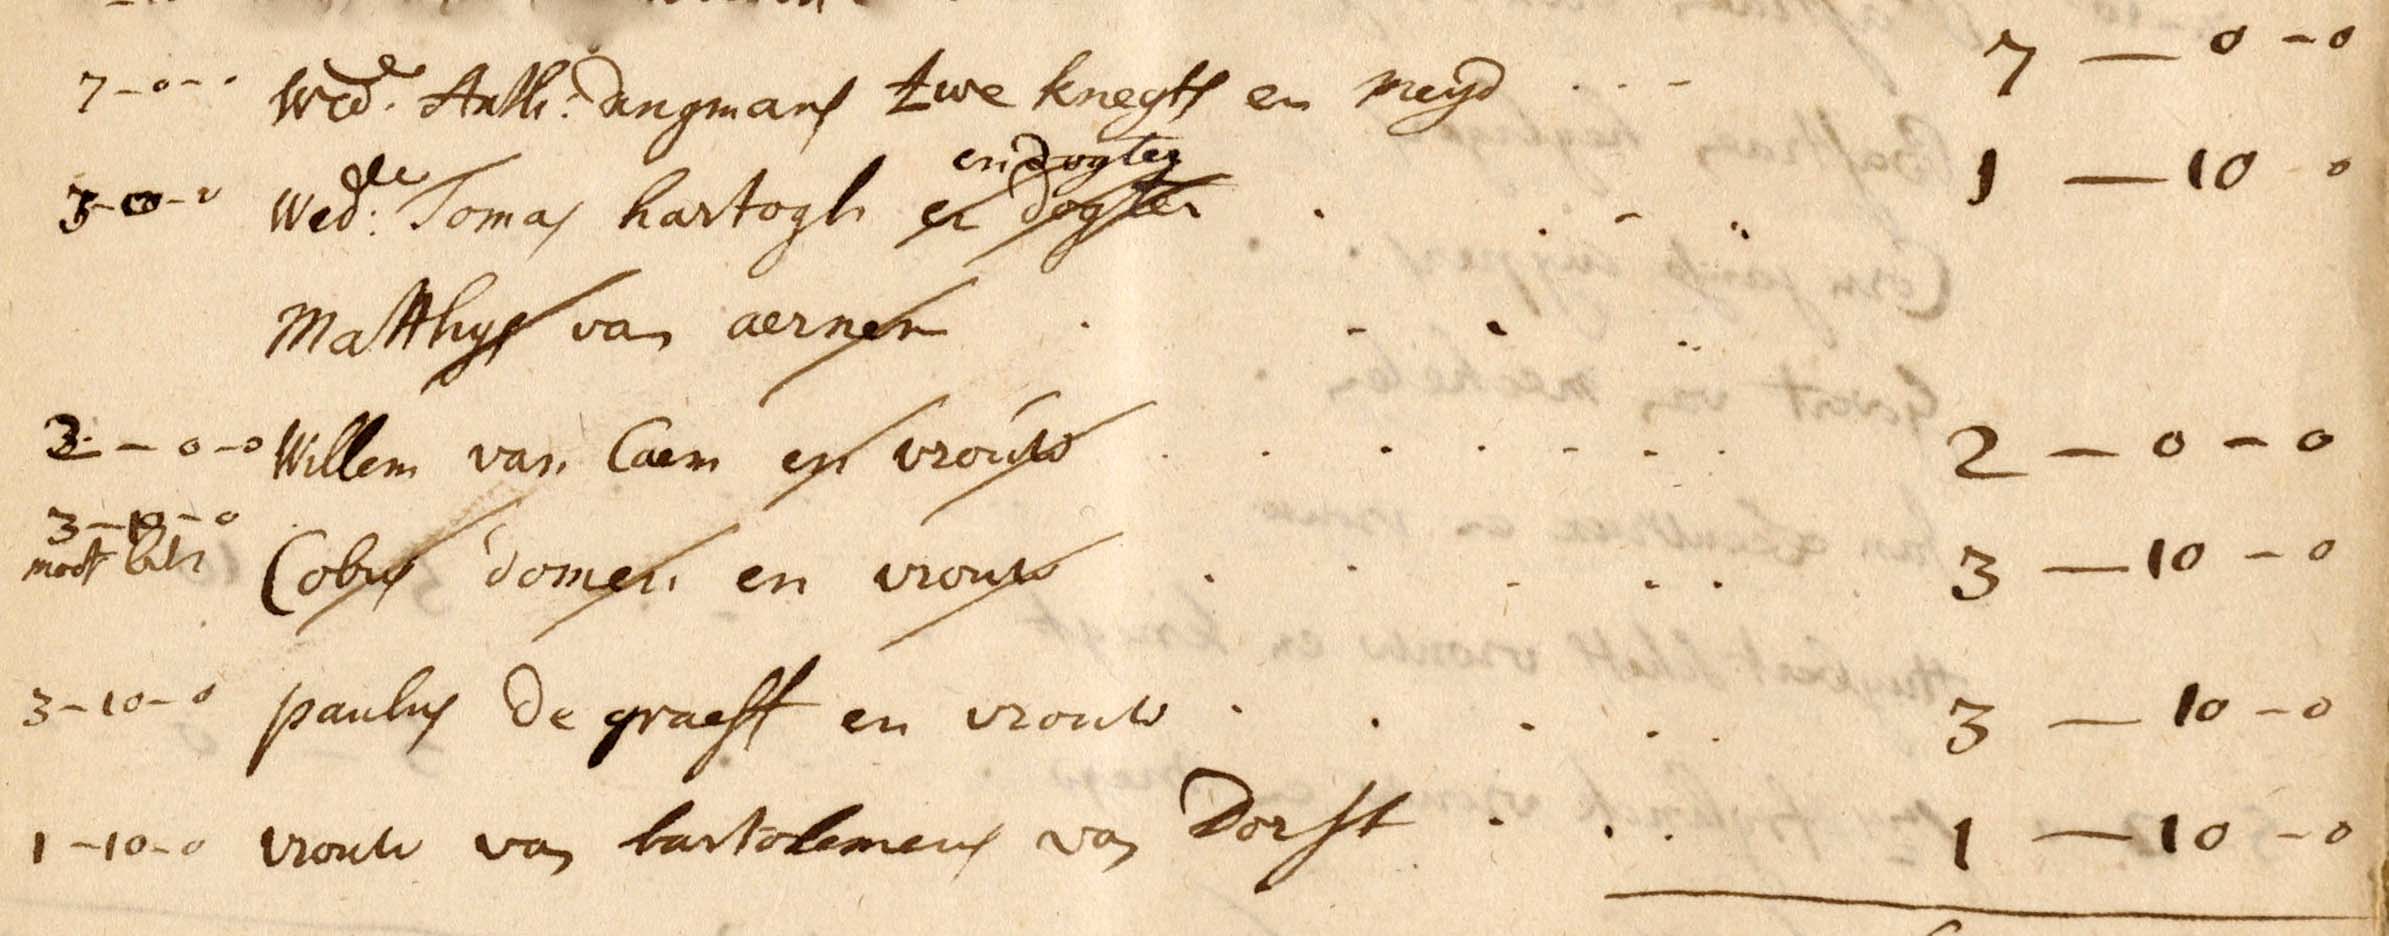 7-0-0 Wed.e Anth: dangmans twe knegts en meyd . . - 7 - 0 - 0
en dogter
3-0-0 Wed:de Tomas hartogh en dogter . . - .. 1 - 10 - 0
Matthys van aernen . - . ..
2 - 0 - 0 Willem van Caem en vrouw . . . . - - . 2 - 0 - 0
3-10-0
moot Cobus domen en vrouw . . - . . 3 - 10 - 0
3-10-0 paulus de graeff en vrouw . . . . . 3 - 10 - 0
1-10-0 vrouw van bartolemeus van Dorst . . . 1 - 10 - 0